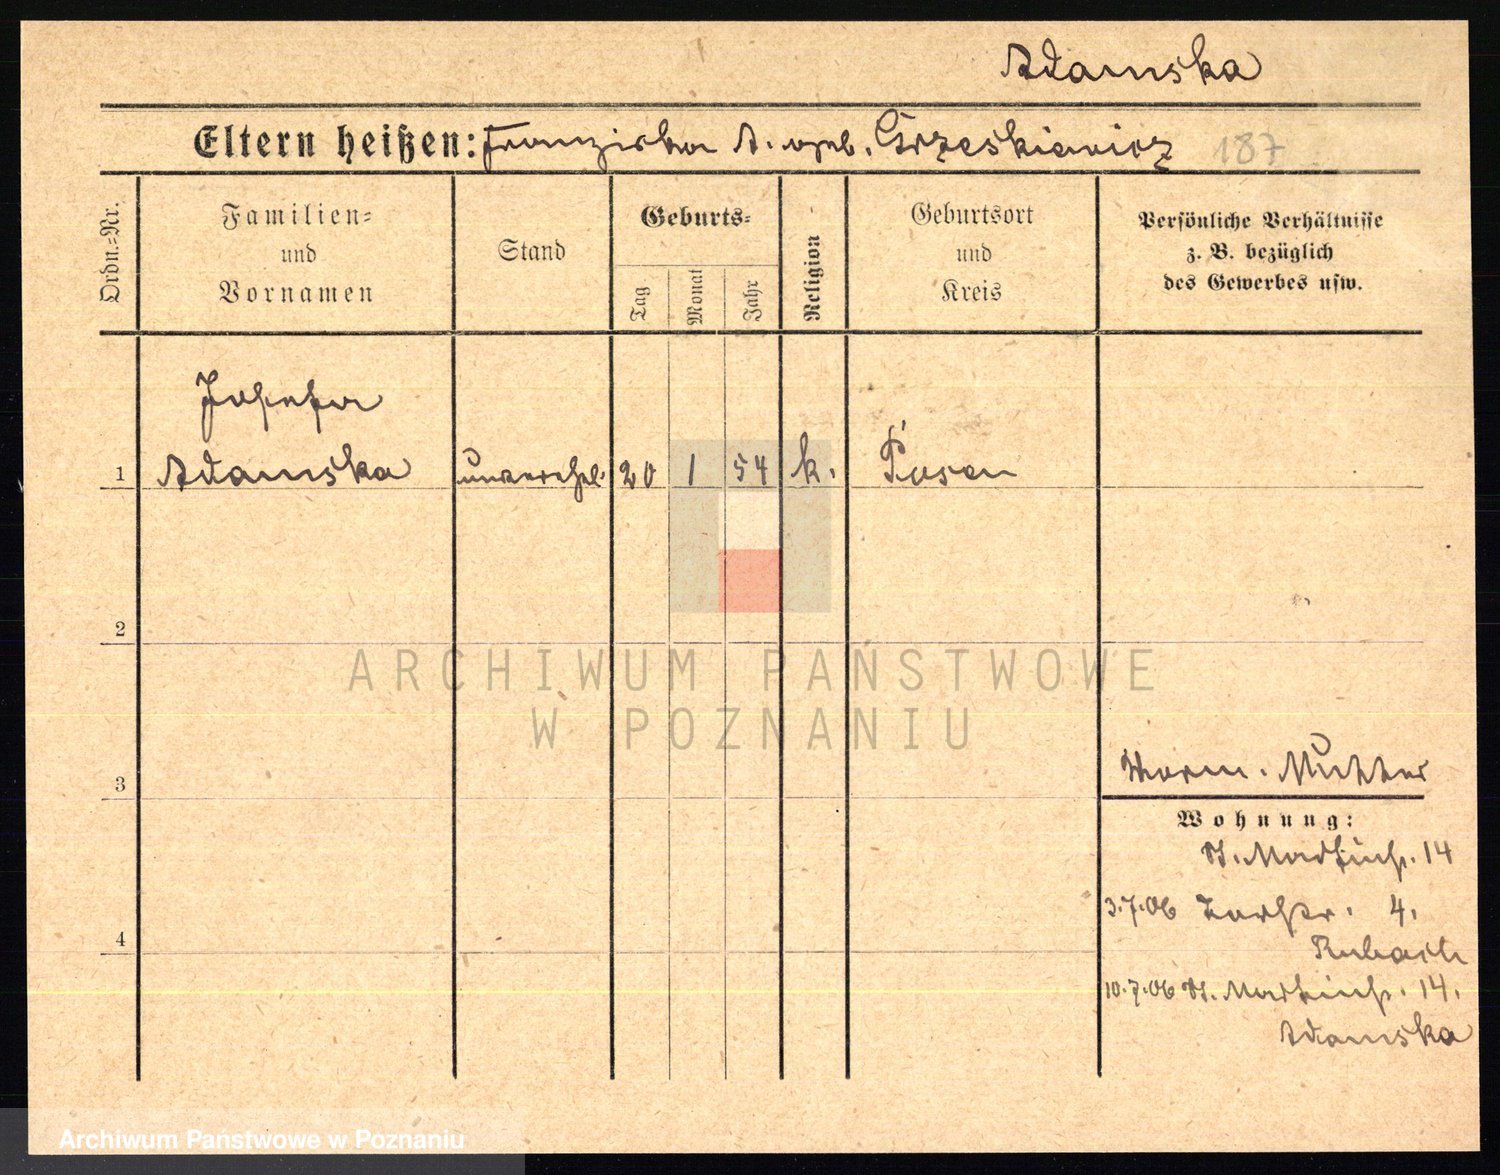 Adamska
Eltern heißen: Franziska A. geb. Grzeskiewicz 187
Ordn.=Nr.
Familien=
und
Vornamen
Stand
Geburts=
Tag
Monat
Jahr
Religion
Geburtsort
und
Kreis
Persönliche Verhältnisse
z. B. bezüglich
des Gewerbes usw.
Josefa
1 Adamska unverehel. 20 1 54 k. Posen
2
ARCHIWUM PAŃSTWOWE
W POZNANIU
Mutter
3
Wohnung:
St. Martinstr. 14
3.7.06 4.
Rubach
4
10.7.06 St. Martinstr. 14.
Adamska
Archiwum Państwowe w Poznaniu